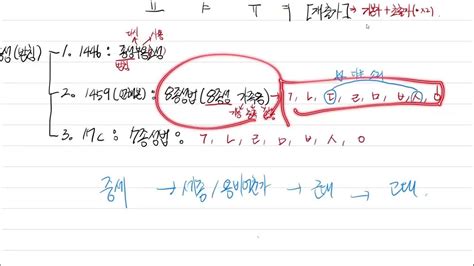 ㅛ ㅑ ㅠ ㅕ [재출자] → 기본자 + 초출자 (·×2)
1. 1446 : 종성부용초성
2. 1459 : 8종성법 (8종성 가족용) → ㄱ, ㄴ, ㄷ, ㄹ, ㅁ, ㅂ, ㅅ, ㆁ
3. 17C : 7종성법 : ㄱ, ㄴ, ㄹ, ㅁ, ㅂ, ㅅ, ㅇ
중세 → 세종/용비어천가 → 근대 → 현대.